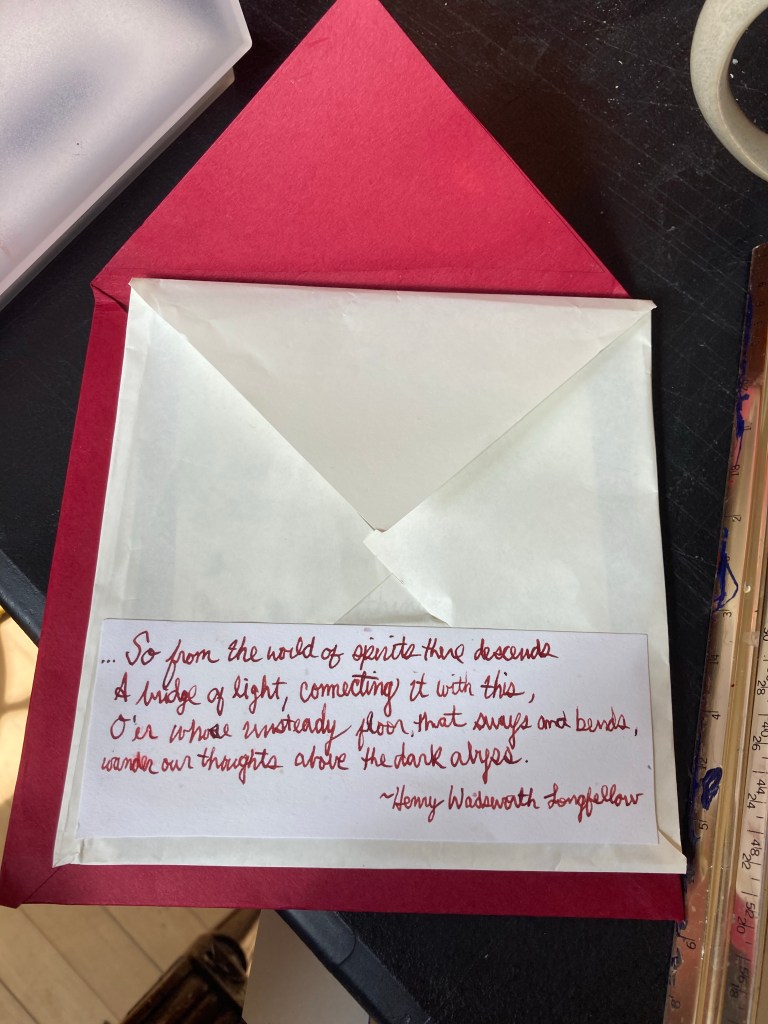 ... So from the world of spirits there descends
A bridge of light, connecting it with this,
O'er whose unsteady floor, that sways and bends,
wander our thoughts above the dark abyss.
~Henry Wadsworth Longfellow